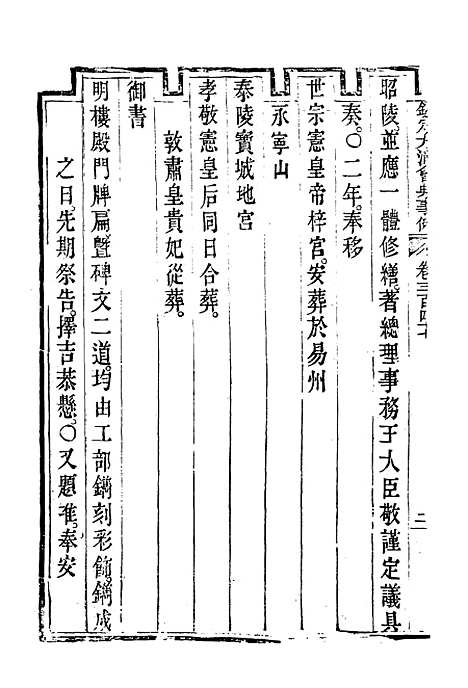 欽定大清會典事例 卷三百四十 二
昭陵並應一體修繕著總理事務王大臣敬謹定議具
奏。〇二年。奉移
世宗憲皇帝梓宮。安葬於易州
永寧山
泰陵寶城地宮
孝敬憲皇后同日合葬。
敦肅皇貴妃從葬。
御書
明樓殿門牌扁曁碑文二道。均由工部鐫刻彩飾。鐫成
之日。先期祭告。擇吉恭懸。〇又題准。奉安